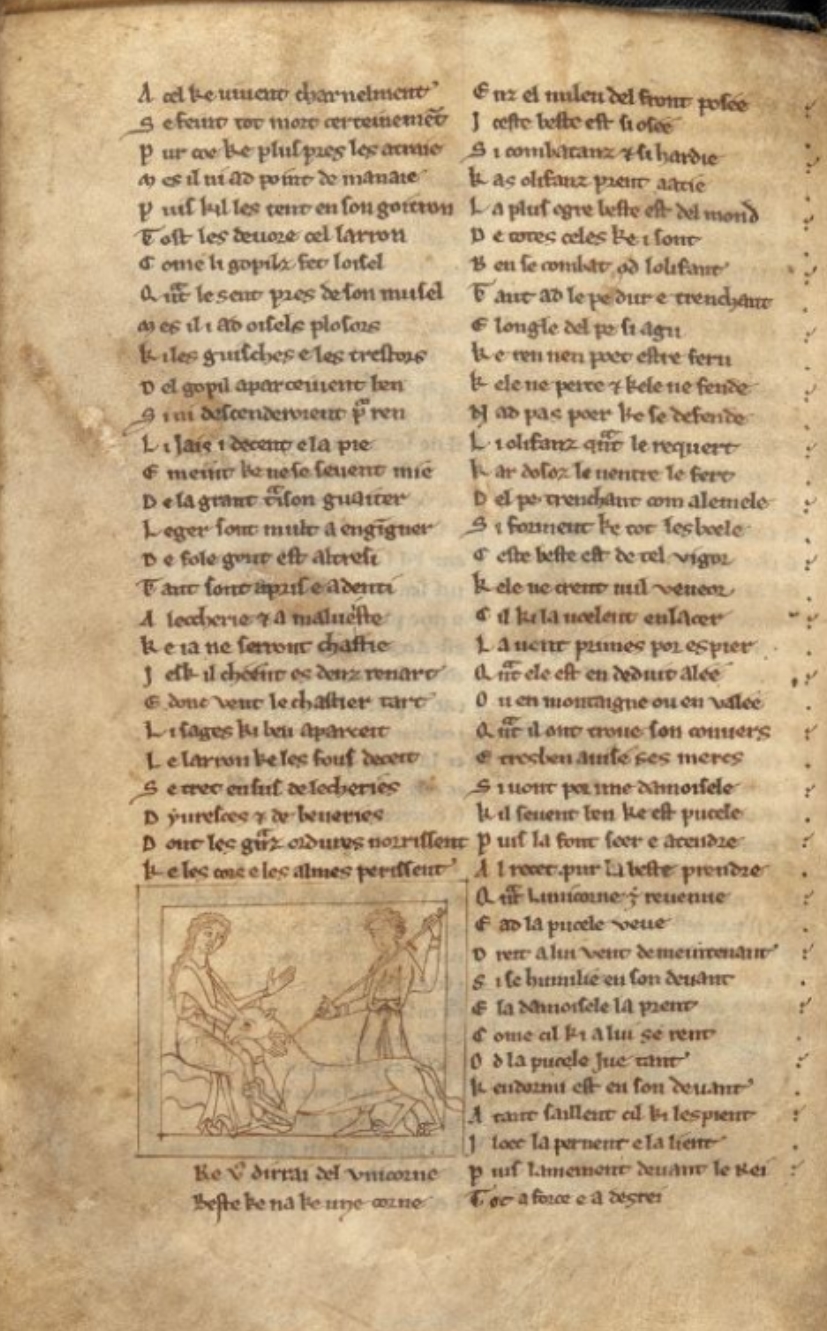 A cel ke vivent charnelment
S e feint tot mort certeinemẽt
P ur coe ke plus pres les atraie
M es il ni ad point de manaie
P uis kil les tent en son goitron
T ost les devore cel larron
C ome li gopilz fet loisel
Q ñt le sent pres de son musel
M es il i ad oisels plosors
K i les guisches e les trestors
D el gopil aparceivent ben
S i ni descenderoient p̃ ren
L i Jais i decent e la pie
E meint ke ne se sevent mie
D e la grant t̃ison guaiter
L eger sont mult a engigner
D e fole gent est altresi
T ant sont apris e adenti
A leccherie ⁊ a malveste
K e ia ne serront chastie
J esk il cheent es denz renart
E donc vent le chastier tart
L i sages ki ben aparceit
L e larron ke les fous deceit
S e tret ensus de lecheries
D yvresces ⁊ de beveries
D ont les ordures norrissent
K e les cors e les almes perissent
Ke dirrai del unicorne
Beste ke na ke une corne
E nz el mileu del front posee
I ceste beste est si osee
S i combatanz ⁊ si hardie
K as olifanz prent aatie
L a plus egre beste est del mond
D e totes celes ke i sont
B en se combat od lolifant
T ant ad le pe dur e trenchant
E longle del pe si agu
K e ren nen poet estre feru
K ele ne perce ⁊ kele ne fende
N ad pas poer ke se defende
L i olifanz qñt le requert
K ar desoz le ventre le fert
D el pe trenchant com alemele
S i forment ke tot lesboele
C este beste est de tel vigor
K ele ne crent nul veneor
C il ki la voelent enlacer
L a vent primes por espier
Q ñt ele est en deduit alee
O u en montaigne ou en valee
Q ñt il ont trove son convers
E tresben avise ses mercs
S i vont por une damoisele
K il sevent ben ke est pucele
P uis la font seer e atendre
A l recet pur la beste prendre
Q ñt lunicorne est revenue
E ad la pucele veue
D reit a lui vent demeintenant
S i se humilie en son devant
E la damoisele la prent
C ome cil ki a lui se rent
O d la pucele Jue tant
K endormi est en son devant
A tant saillent cil ki lespient
I loec la pernent e la lient
P uis lameinent devant le Rei
T ot a force e a desrei